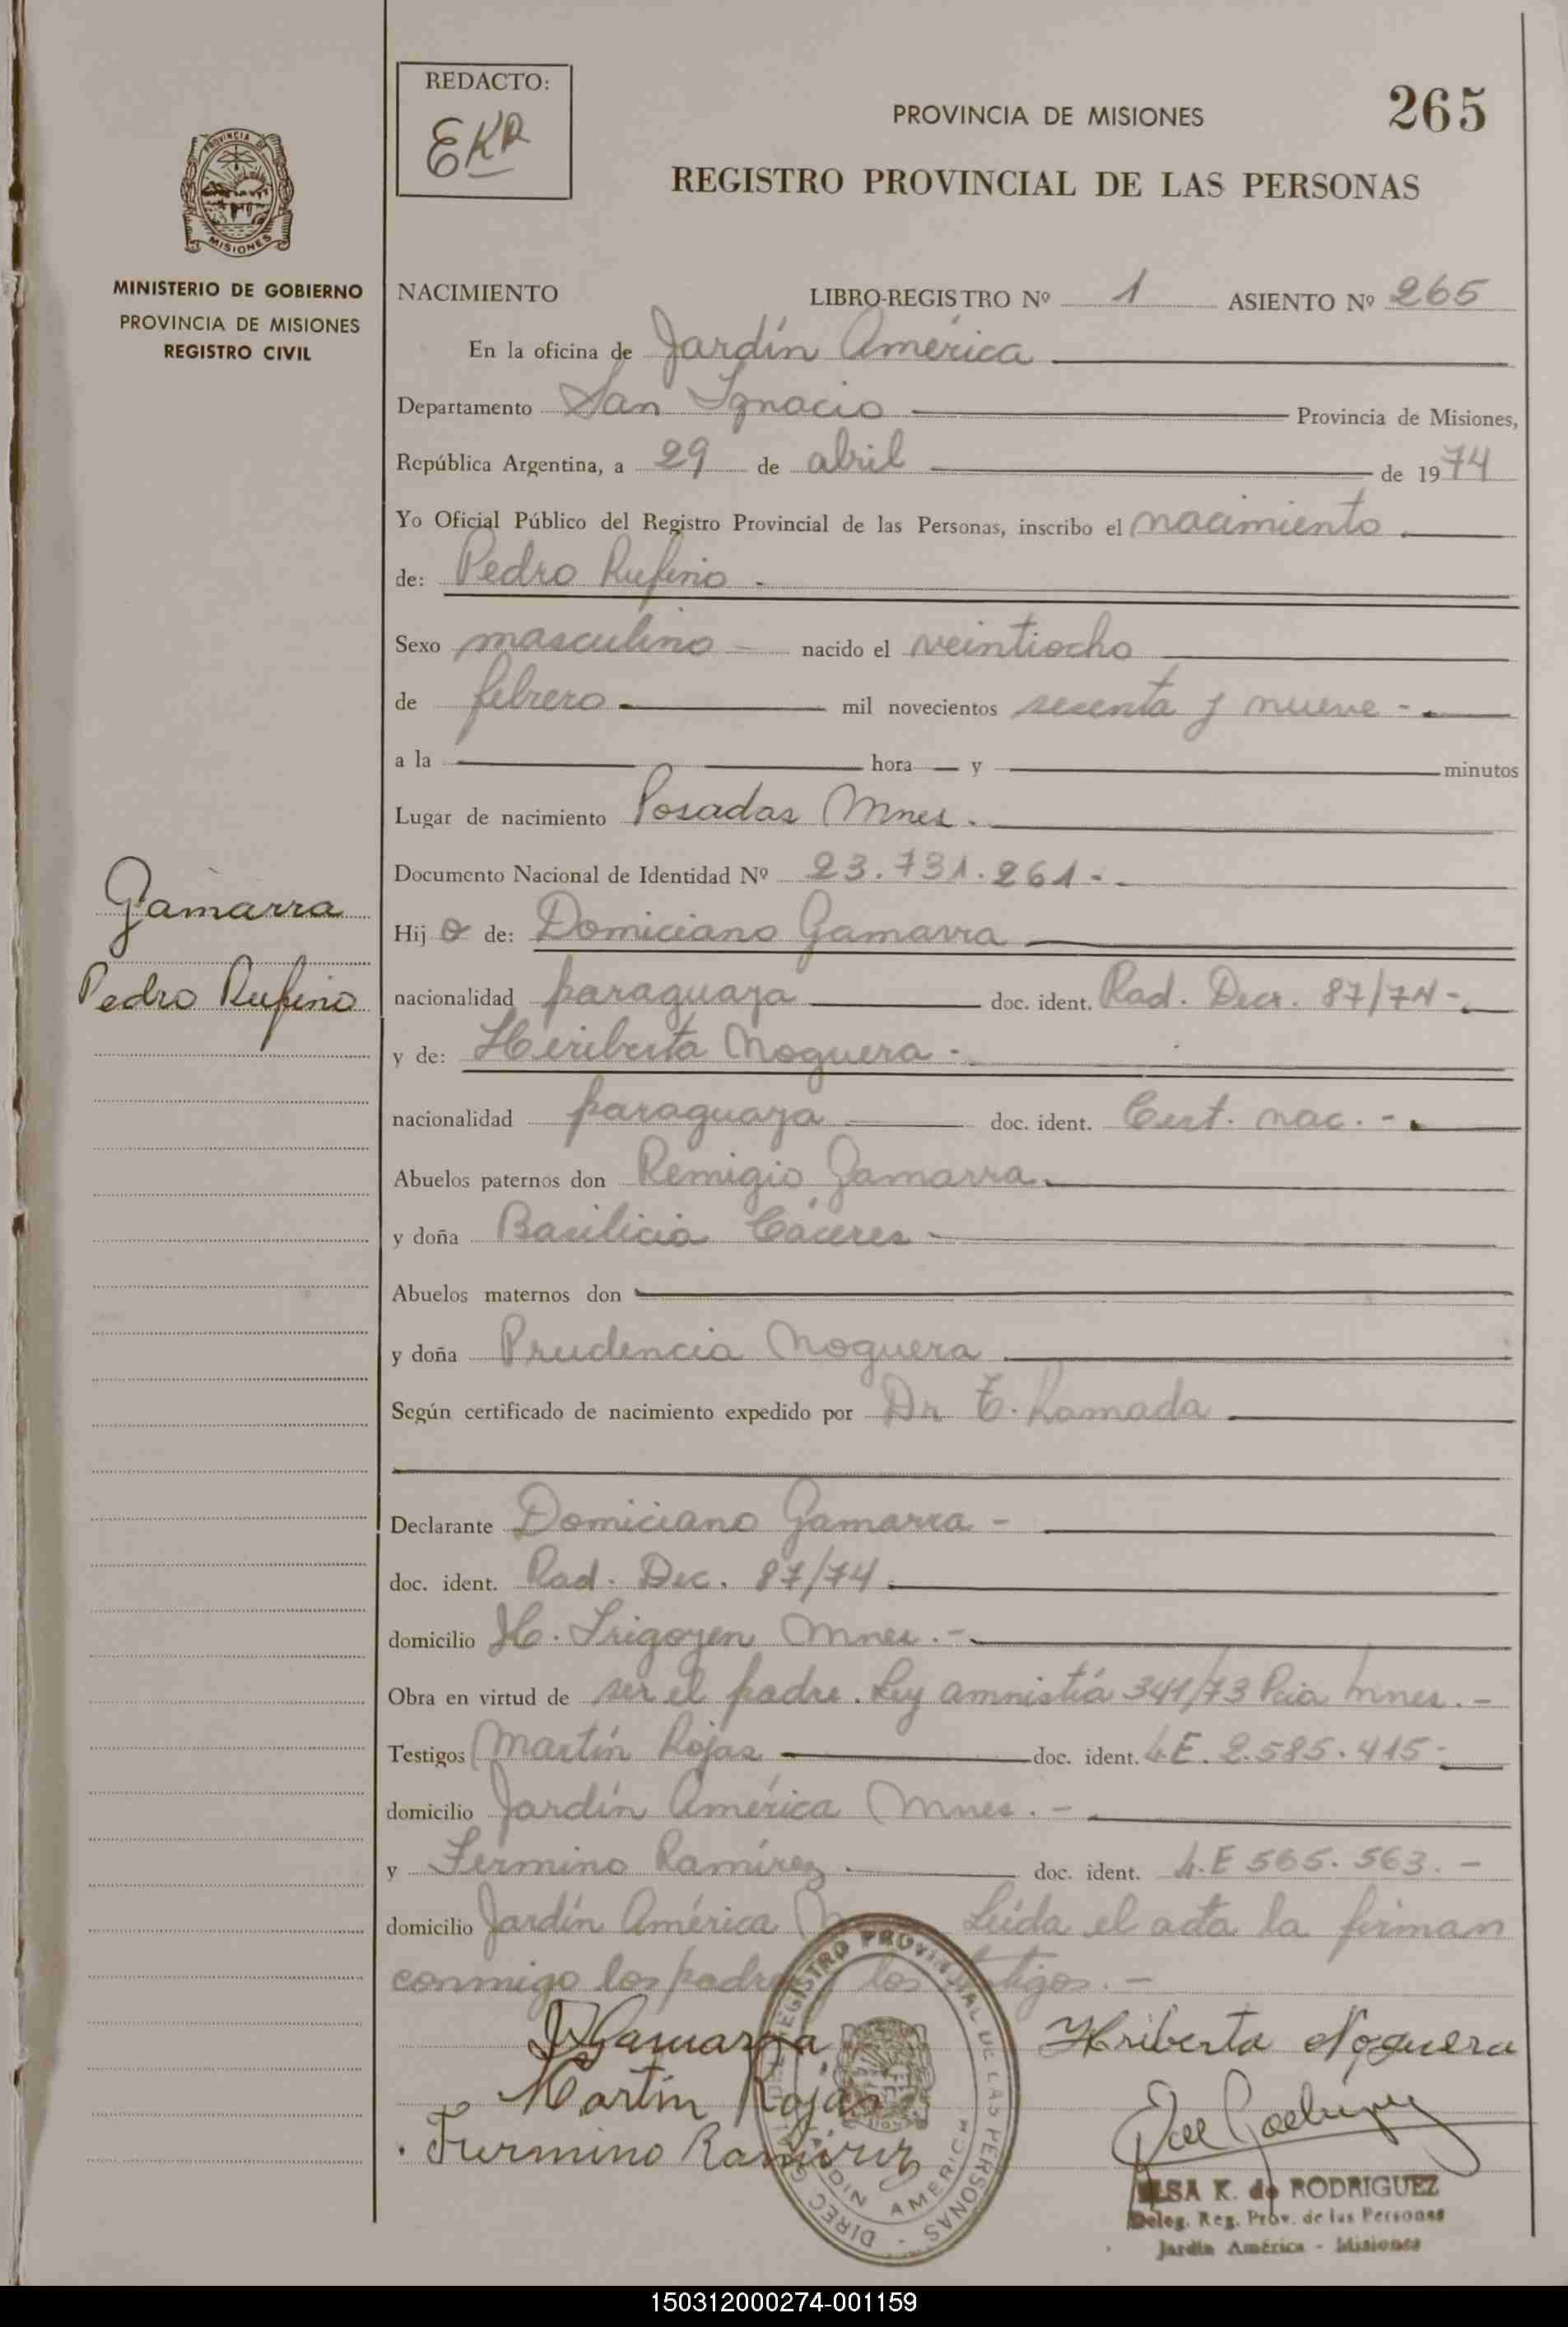 REDACTO:
EKR
PROVINCIA DE MISIONES
265
REGISTRO PROVINCIAL DE LAS PERSONAS
PROVINCIA DE
MISIONES
MINISTERIO DE GOBIERNO
PROVINCIA DE MISIONES
REGISTRO CIVIL
NACIMIENTO LIBRO-REGISTRO Nº 1 ASIENTO Nº 265
En la oficina de Jardín América
Departamento San Ignacio Provincia de Misiones,
República Argentina, a 29 de abril de 1974
Yo Oficial Público del Registro Provincial de las Personas, inscribo el nacimiento
de: Pedro Rufino
Sexo masculino nacido el veintiocho
de febrero mil novecientos sesenta y nueve
a la hora y minutos
Lugar de nacimiento Posadas Mnes.
Documento Nacional de Identidad Nº 23.731.261
Gamarra
Pedro Rufino
Hijo de: Domiciano Gamarra
nacionalidad paraguaya doc. ident. Rad. Decr. 87/74
y de: Heriberta Noguera
nacionalidad paraguaya doc. ident. Cert. nac.
Abuelos paternos don Remigio Gamarra
y doña Basilicia Cáceres
Abuelos maternos don
y doña Prudencia Noguera
Según certificado de nacimiento expedido por Dr T. Kamada
Declarante Domiciano Gamarra
doc. ident. Rad. Dec. 87/74
domicilio H. Irigoyen Mnes.
Obra en virtud de ser el padre. Ley amnistía 341/73 Pcia Mnes.
Testigos Martín Rojas doc. ident. L.E. 2.585.415
domicilio Jardín América Mnes.
y Fermino Ramírez doc. ident. L.E 565.563.
domicilio Jardín América Leída el acta la firman
conmigo los padres los testigos.
DGamarra
Heriberta Noguera
Martín Rojas
Furmino Ramirez
DIREC. G. DEL REGISTRO PROVINCIAL DE LAS PERSONAS
JARDIN AMERICA
ELSA K. de RODRIGUEZ
Deleg. Reg. Prov. de las Personas
Jardín América - Misiones
150312000274-001159